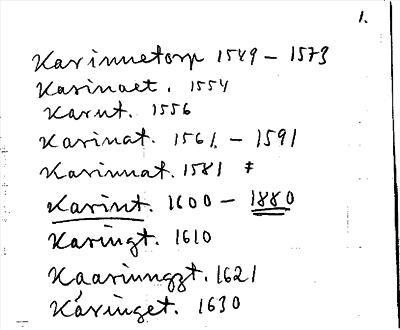 1.
Karinnetorp 1549 – 1573
Karinaet. 1554
Karnt. 1556
Karinat. 1561. – 1591
Karinnat. 1581 ‡
Karint. 1600 – 1880
Karingt. 1610
Kaariunggt. 1621
Káringet. 1630